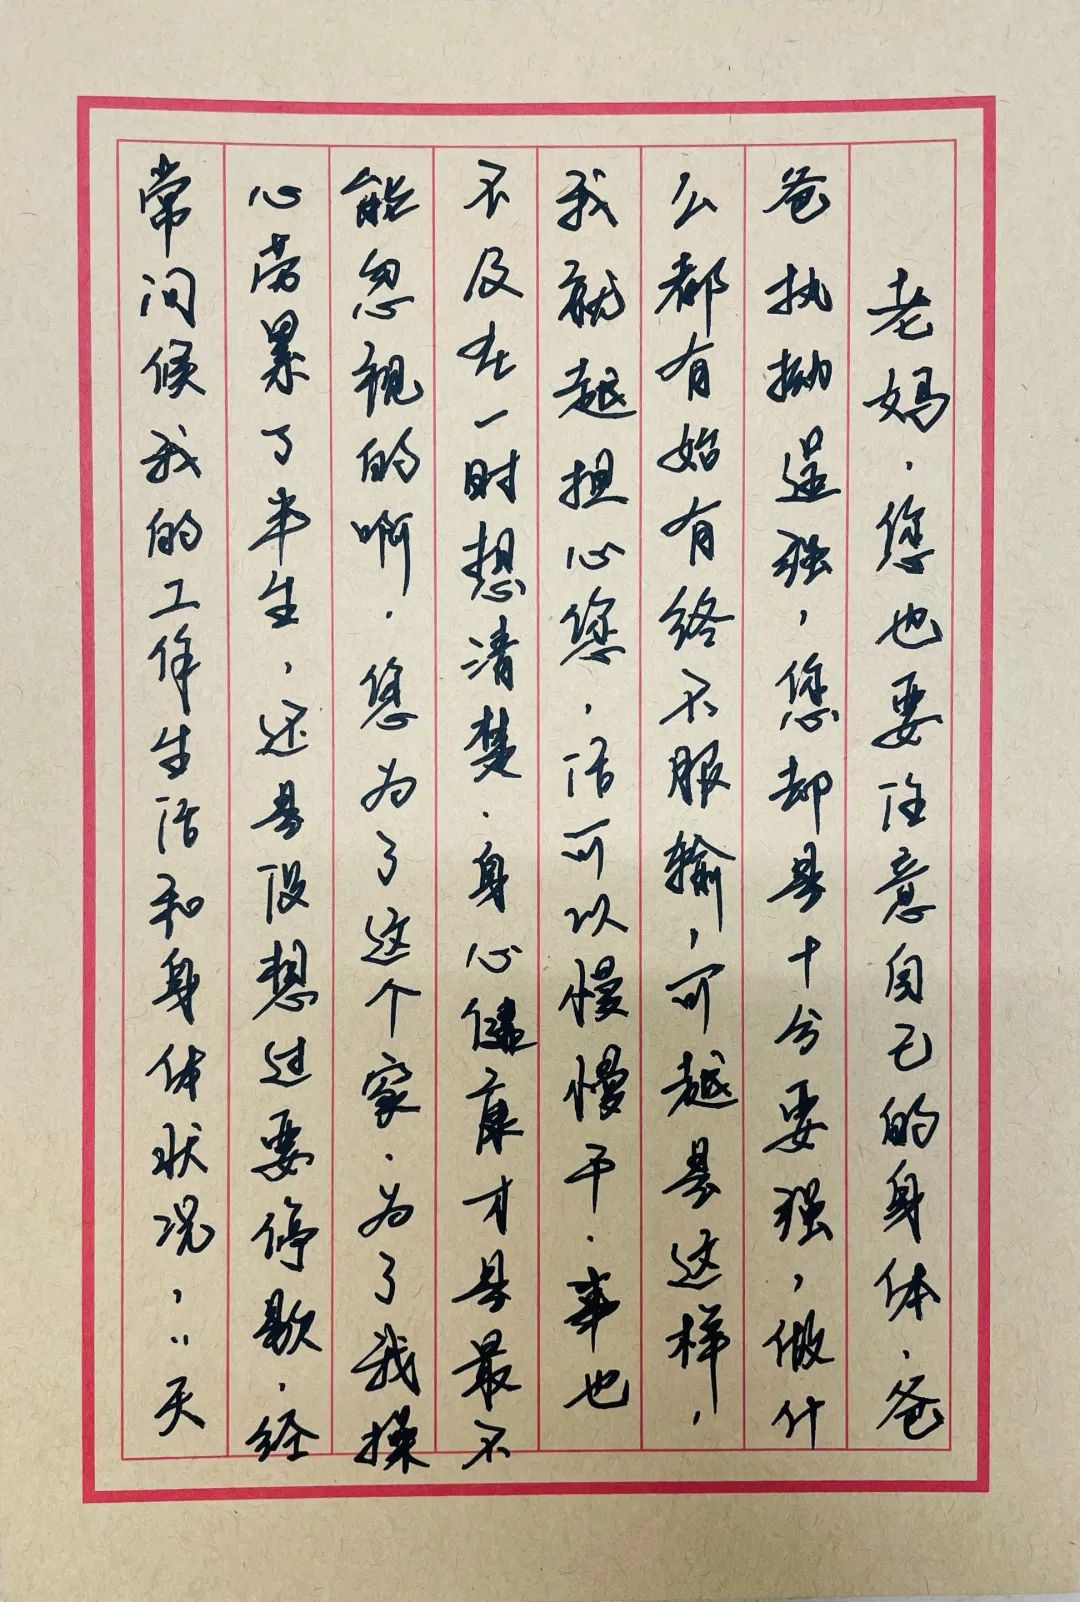 老妈.您也要注意自己的身体.爸
爸执拗逞强,您却是十分要强,做什
么都有始有终不服输,可越是这样,
我就越担心您.活可以慢慢干.事也
不及在一时想清楚.身心健康才是最不
能忽视的啊.您为了这个家.为了我操
心劳累了半生,还是没想过要停歇.经
常问候我的工作生活和身体状况,“天